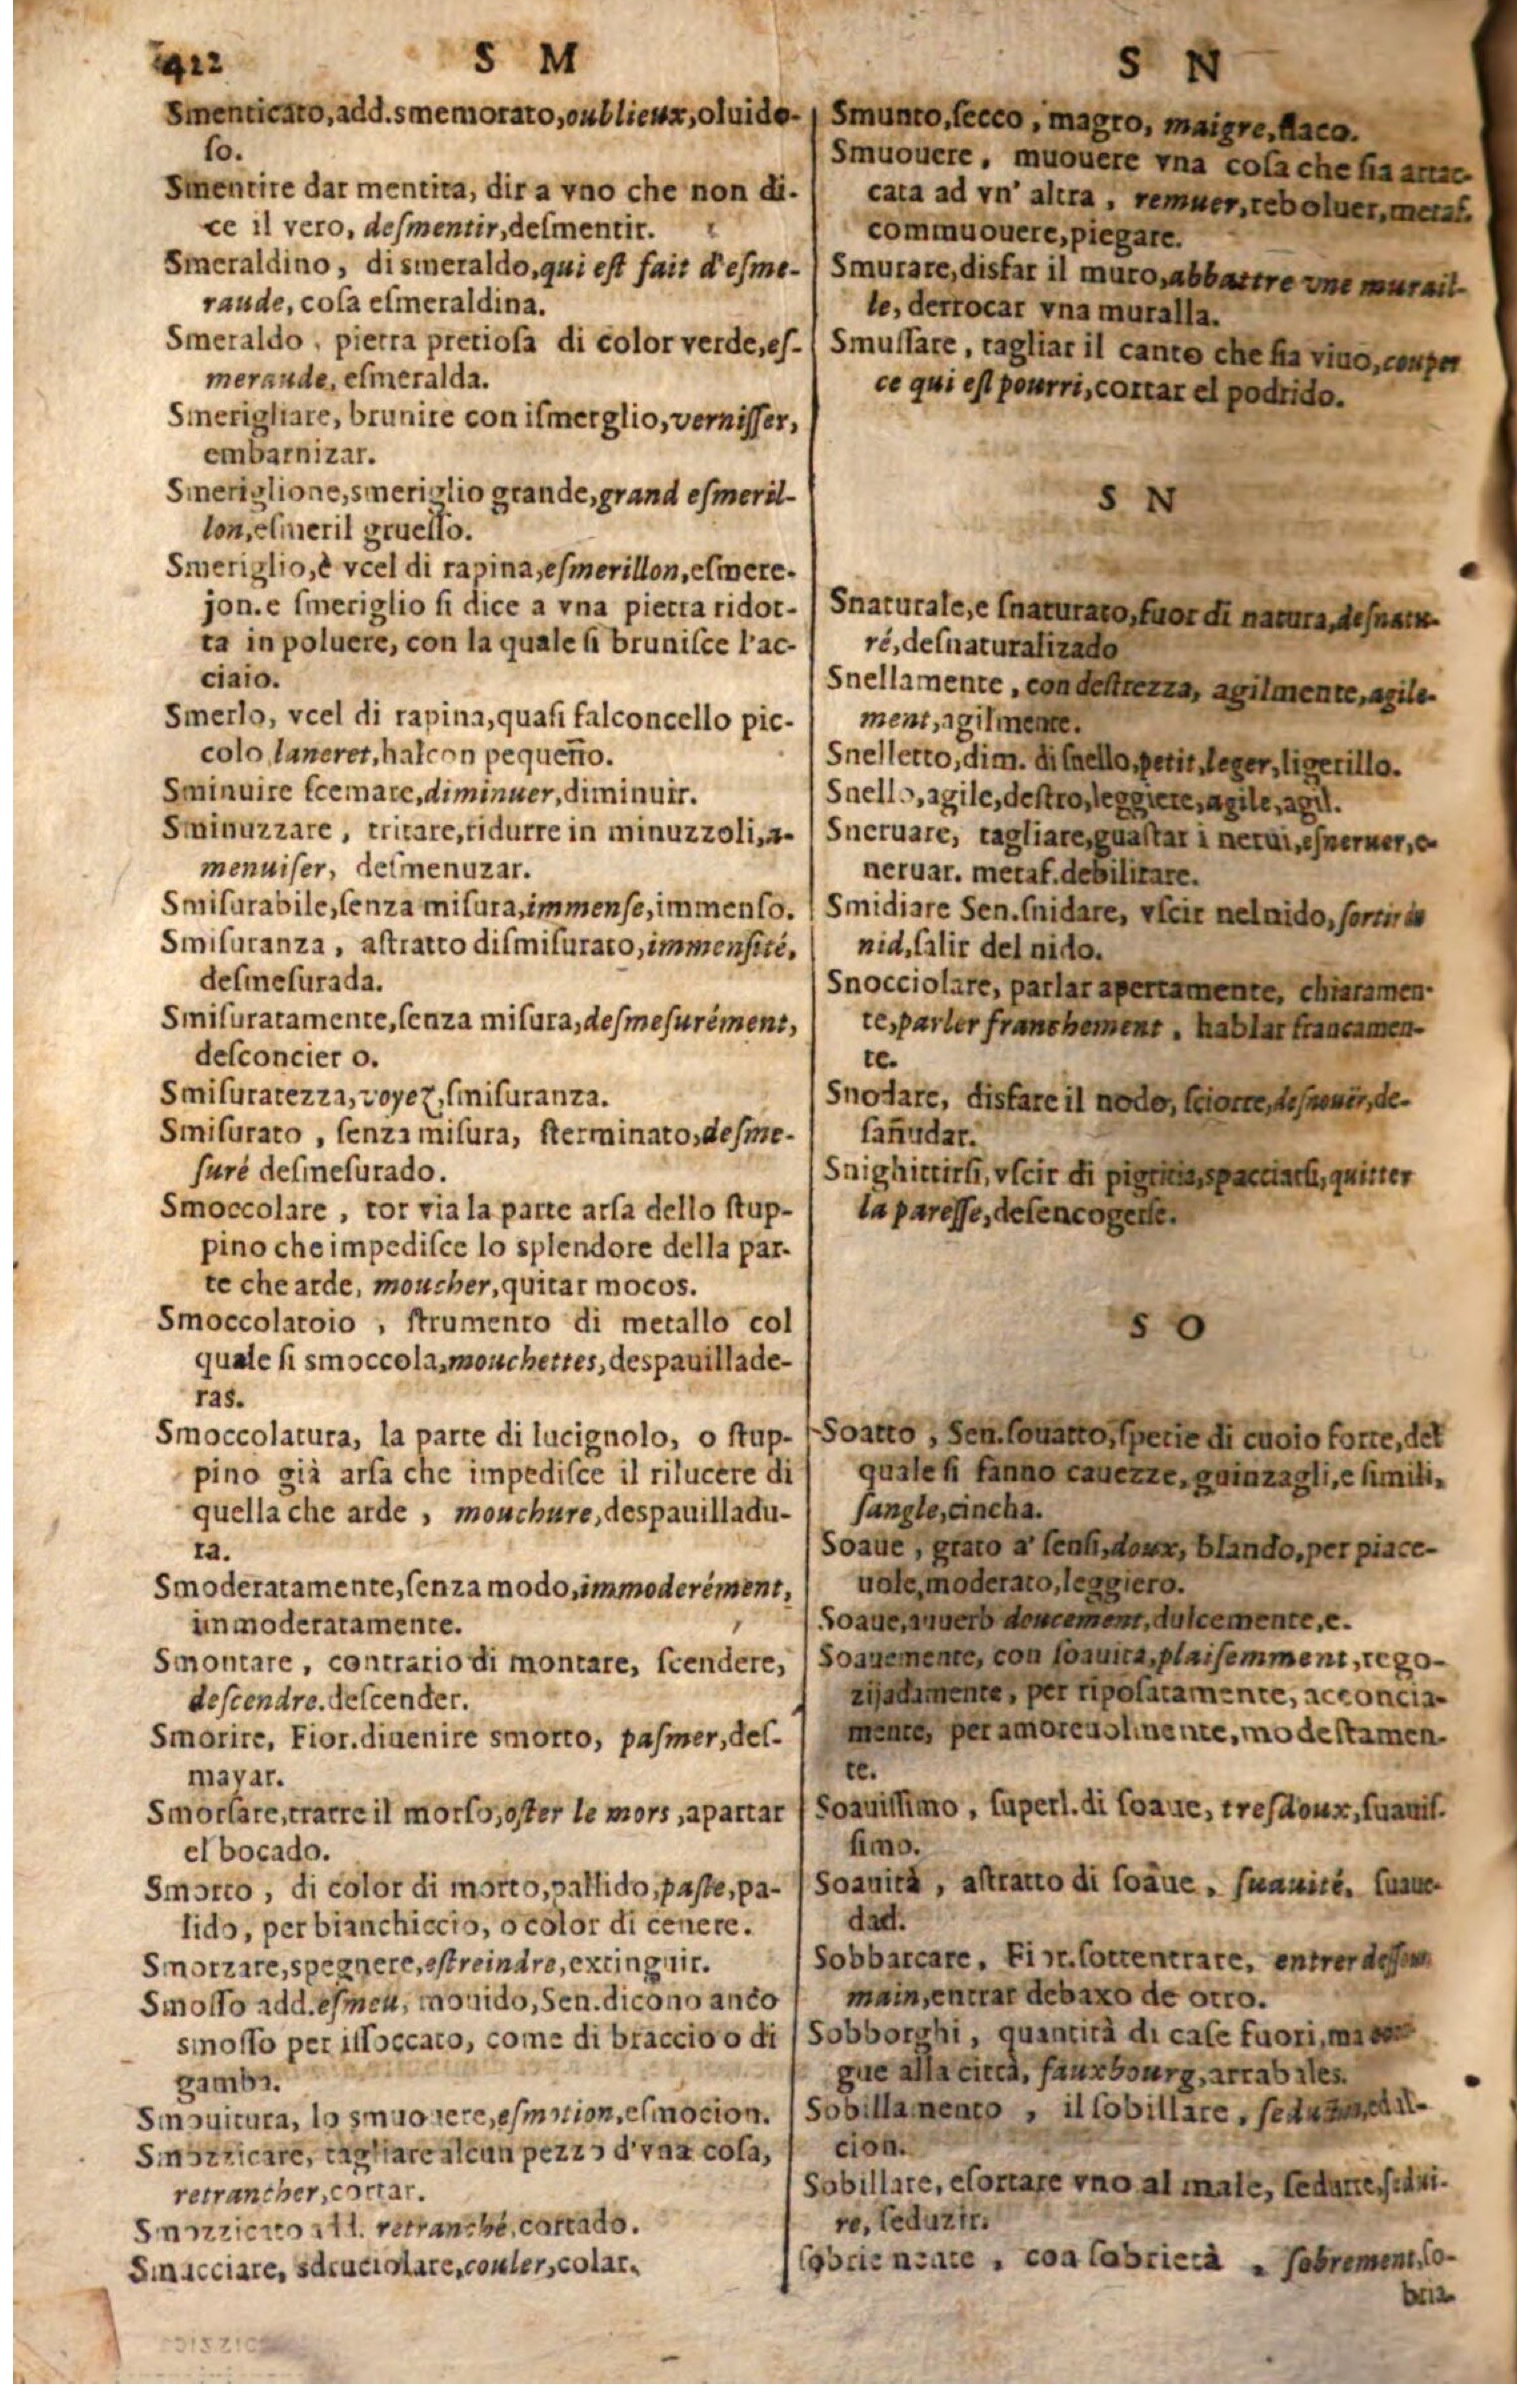 422 S M
Smenticato,add.smemorato,oublieux,oluido-
ſo.
Smentire dar mentita, dir a vno che non di-
ce il vero, deſmentir,deſmentir.
Smeraldino, di smeraldo,qui eſt fait d'eſme-
raude, coſa eſmeraldina.
Smeraldo, pietra pretioſa di color verde,eſ-
meraude, eſmeralda.
Smerigliare, brunire con iſmerglio,verniſſer,
embarnizar.
Smeriglione,smeriglio grande,grand eſmeril-
lon,eſmeril grueſſo.
Smeriglio,è vcel di rapina,eſmerillon,eſmere-
jon.e ſmeriglio ſi dice a vna pietra ridot-
ta in poluere, con la quale ſi bruniſce l'ac-
ciaio.
Smerlo, vcel di rapina,quaſi falconcello pic-
colo laneret,halcon pequeño.
Sminuire ſcemare,diminuer,diminuir.
Sminuzzare, tritare,ridurre in minuzzoli,a-
menuiſer, deſmenuzar.
Smiſurabile,ſenza miſura,immenſe,immenſo.
Smiſuranza, aſtratto diſmiſurato,immenſité,
deſmeſurada.
Smiſuratamente,ſenza miſura,deſmeſurément,
deſconcier o.
Smiſuratezza,voyez,ſmiſuranza.
Smiſurato, ſenza miſura, ſterminato,deſme-
ſuré deſmeſurado.
Smoccolare, tor via la parte arſa dello ſtup-
pino che impediſce lo splendore della par-
te che arde, moucher,quitar mocos.
Smoccolatoio, ſtrumento di metallo col
quale ſi smoccola,mouchettes,despauillade-
ras.
Smoccolatura, la parte di lucignolo, o ſtup-
pino già arſa che impediſce il rilucere di
quella che arde, mouchure,despauilladu-
ra.
Smoderatamente,ſenza modo,immoderément,
immoderatamente.
Smontare, contrario di montare, ſcendere,
deſcendre.deſcender.
Smorire, Fior.diuenire smorto, paſmer,deſ-
mayar.
Smorſare,trarre il morſo,oſter le mors,apartar
el bocado.
Smorto, di color di morto,pallido,paſle,pa-
lido, per bianchiccio, o color di cenere.
Smorzare,spegnere,eſtreindre,extinguir.
Smoſſo add.eſmeu, mouido,Sen.dicono anco
smoſſo per iſſoccato, come di braccio o di
gamba.
Smouitura, lo smuouere,eſmotion,eſmocion.
Smozzicare, tagliare alcun pezzo d'vna coſa,
retrancher,cortar.
Smozzicato add. retranché,cortado.
Smucciare, sdruciolare,couler,colar.
S N
Smunto,ſecco, magro, maigre,flaco.
Smuouere, muouere vna coſa che ſia attac-
cata ad vn' altra, remuer,reboluer,metaf.
commuouere,piegare.
Smurare,disfar il muro,abbattre vne murail-
le, derrocar vna muralla.
Smuſſare, tagliar il canto che ſia viuo,couper
ce qui eſt pourri,cortar el podrido.
S N
Snaturale,e ſnaturato,fuor di natura,deſnatu-
ré,deſnaturalizado
Snellamente, con deſtrezza, agilmente,agile-
ment,agilmente.
Snelletto,dim. di ſnello,petit,leger,ligerillo.
Snello,agile,deſtro,leggiere,agile,agil.
Sneruare, tagliare,guaſtar i nerui,eſneruer,e-
neruar. metaf.debilitare.
Smidiare Sen.ſnidare, vſcir nel nido, ſortir du
nid,ſalir del nido.
Snocciolare, parlar apertamente, chiaramen-
te,parler franchement, hablar francamen-
te.
Snodare, disfare il nodo, ſciorre,deſnouër,de-
ſañudar.
Snighittirſi, vſcir di pigritia,spacciarſi,quitter
la pareſſe,deſencogerſe.
S O
Soatto, Sen.ſouatto,ſpetie di cuoio forte,del
quale ſi fanno cauezze,guinzagli,e ſimili,
ſangle,cincha.
Soaue, grato a' ſenſi,doux, blando,per piace-
uole,moderato,leggiero.
Soaue,auuerb doucement,dulcemente,e.
Soauemente, con ſoauità,plaiſemment,rego-
zijadamente, per ripoſatamente, acconcia-
mente, per amoreuolmente,modeſtamen-
te.
Soauiſſimo, ſuperl.di ſoaue, treſdoux,ſuauiſ-
ſimo.
Soauità, aſtratto di ſoaue, ſuauité, ſuaue-
dad.
Sobbarcare, Fior.ſottentrare, entrer deſſous
main,entrar debaxo de otro.
Sobborghi, quantità di caſe fuori,ma
gue alla città, fauxbourg,arrabales.
Sobillamento, il ſobillare,
cion.
Sobillare, eſortare vno al male, ſedurre,ſedui-
re, ſeduzir.
Sobriemente, con ſobrietà, ſobrement,ſo-
bria-